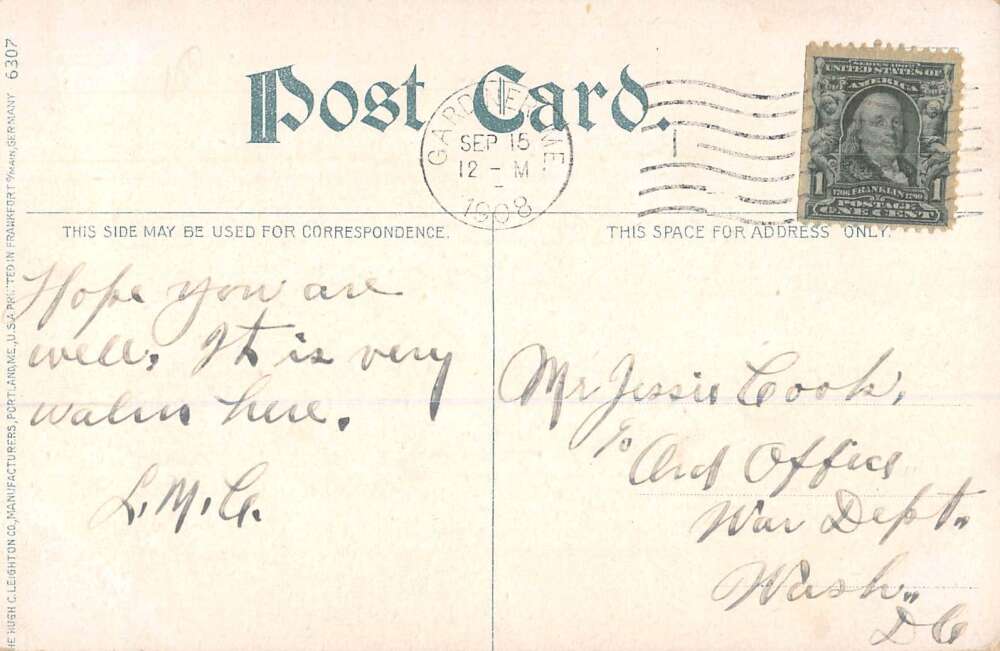 Post Card.
GARDINER, ME.
SEP 15
12 - M
1908
SERIES 1902
UNITED STATES OF
AMERICA
1 1706 FRANKLIN 1790 1
POSTAGE
ONE CENT
THIS SIDE MAY BE USED FOR CORRESPONDENCE.
THIS SPACE FOR ADDRESS ONLY.
Hope you are
well. It is very
walm here.
L. M. C.
Mr Jessie Cook,
c/o Ord Office
War Dept.
Wash.
D C
HE HUGH C. LEIGHTON CO., MANUFACTURERS, PORTLAND, ME., U.S.A. PRINTED IN FRANKFORT o/MAIN, GERMANY 6307